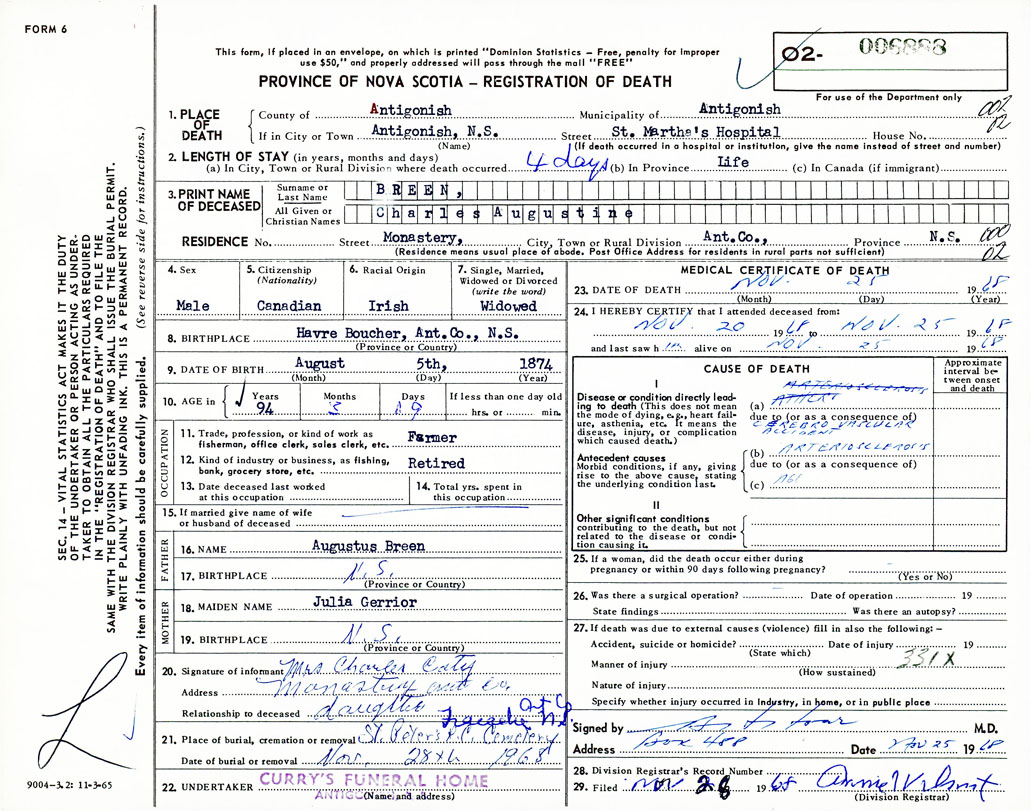 FORM 6
This form, if placed in an envelope, on which is printed "Dominion Statistics — Free, penalty for improper
use $50," and properly addressed will pass through the mail "FREE"
PROVINCE OF NOVA SCOTIA — REGISTRATION OF DEATH
O2-
For use of the Department only
002
02
1. PLACE OF DEATH
County of Antigonish Municipality of Antigonish
If in City or Town Antigonish, N.S. Street St. Martha's Hospital House No.
(Name) (If death occurred in a hospital or institution, give the name instead of street and number)
2. LENGTH OF STAY (in years, months and days)
(a) In City, Town or Rural Division where death occurred 4 days (b) In Province Life (c) In Canada (if immigrant)
3. PRINT NAME OF DECEASED
Surname or Last Name BREEN,
All Given or Christian Names Charles Augustine
RESIDENCE No. Street Monastery, City, Town or Rural Division Ant.Co., Province N.S.
(Residence means usual place of abode. Post Office Address for residents in rural parts not sufficient)
000
02
4. Sex
Male
5. Citizenship
(Nationality)
Canadian
6. Racial Origin
Irish
7. Single, Married,
Widowed or Divorced
(write the word)
Widowed
8. BIRTHPLACE Havre Boucher, Ant.Co., N.S.
(Province or Country)
9. DATE OF BIRTH August 5th, 1874
(Month) (Day) (Year)
10. AGE in Years Months Days If less than one day old
94 3 19 hrs. or min.
OCCUPATION
11. Trade, profession, or kind of work as
fisherman, office clerk, sales clerk, etc. Farmer
12. Kind of industry or business, as fishing,
bank, grocery store, etc. Retired
13. Date deceased last worked
at this occupation
14. Total yrs. spent in
this occupation
15. If married give name of wife
or husband of deceased
FATHER
16. NAME Augustus Breen
17. BIRTHPLACE N.S.
(Province or Country)
MOTHER
18. MAIDEN NAME Julia Gerrior
19. BIRTHPLACE N.S.
(Province or Country)
20. Signature of informant Mrs Charles
Address Monastery
Relationship to deceased daughter
21. Place of burial, cremation or removal St. Peter's R.C. Cemetery
Date of burial or removal Nov. 28th 1968
22. UNDERTAKER CURRY'S FUNERAL HOME
(Name and address)
MEDICAL CERTIFICATE OF DEATH
23. DATE OF DEATH NOV. 25 1968
(Month) (Day) (Year)
24. I HEREBY CERTIFY that I attended deceased from:
NOV. 20 1968 to NOV. 25 1968
and last saw him alive on NOV. 25 1968
CAUSE OF DEATH
Approximate
interval be-
tween onset
and death
I
Disease or condition directly lead-
ing to death (This does not mean
the mode of dying, e.g., heart fail-
ure, asthenia, etc. It means the
disease, injury, or complication
which caused death.)
ARTERIOSCLEROSIS
(a)
due to (or as a consequence of)
CEREBRO VASCULAR
ACCIDENT
Antecedent causes
Morbid conditions, if any, giving
rise to the above cause, stating
the underlying condition last.
(b) ARTERIOSCLEROSIS
due to (or as a consequence of)
(c) AGE
II
Other significant conditions
contributing to the death, but not
related to the disease or condi-
tion causing it.
25. If a woman, did the death occur either during
pregnancy or within 90 days following pregnancy?
(Yes or No)
26. Was there a surgical operation? Date of operation 19
State findings Was there an autopsy?
27. If death was due to external causes (violence) fill in also the following: —
Accident, suicide or homicide? Date of injury 19
(State which)
331X
Manner of injury
(How sustained)
Nature of injury
Specify whether injury occurred in Industry, in home, or in public place
Signed by M.D.
Address Box 488 Date Nov 25 1968
28. Division Registrar's Record Number
29. Filed Nov 28 1968
(Division Registrar)
SEC. 14 — VITAL STATISTICS ACT MAKES IT THE DUTY
OF THE UNDERTAKER OR PERSON ACTING AS UNDER-
TAKER TO OBTAIN ALL THE PARTICULARS REQUIRED
IN THE "REGISTRATION OF DEATH" AND TO FILE THE
SAME WITH THE DIVISION REGISTRAR WHO SHALL ISSUE THE BURIAL PERMIT.
WRITE PLAINLY WITH UNFADING INK. THIS IS A PERMANENT RECORD.
Every item of information should be carefully supplied. (See reverse side for instructions.)
9004-3.2: 11-3-65